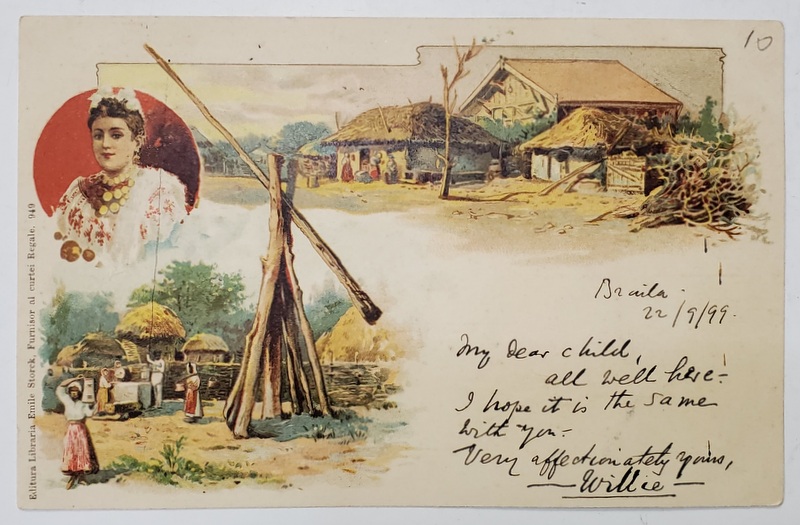 10
Editura Libraria Emile Storck, Furnisor al curtei Regale. 949
Braila.
22/9/99.
My dear child,
all well here-
I hope it is the same
with you-
Very affectionately yours,
Willie